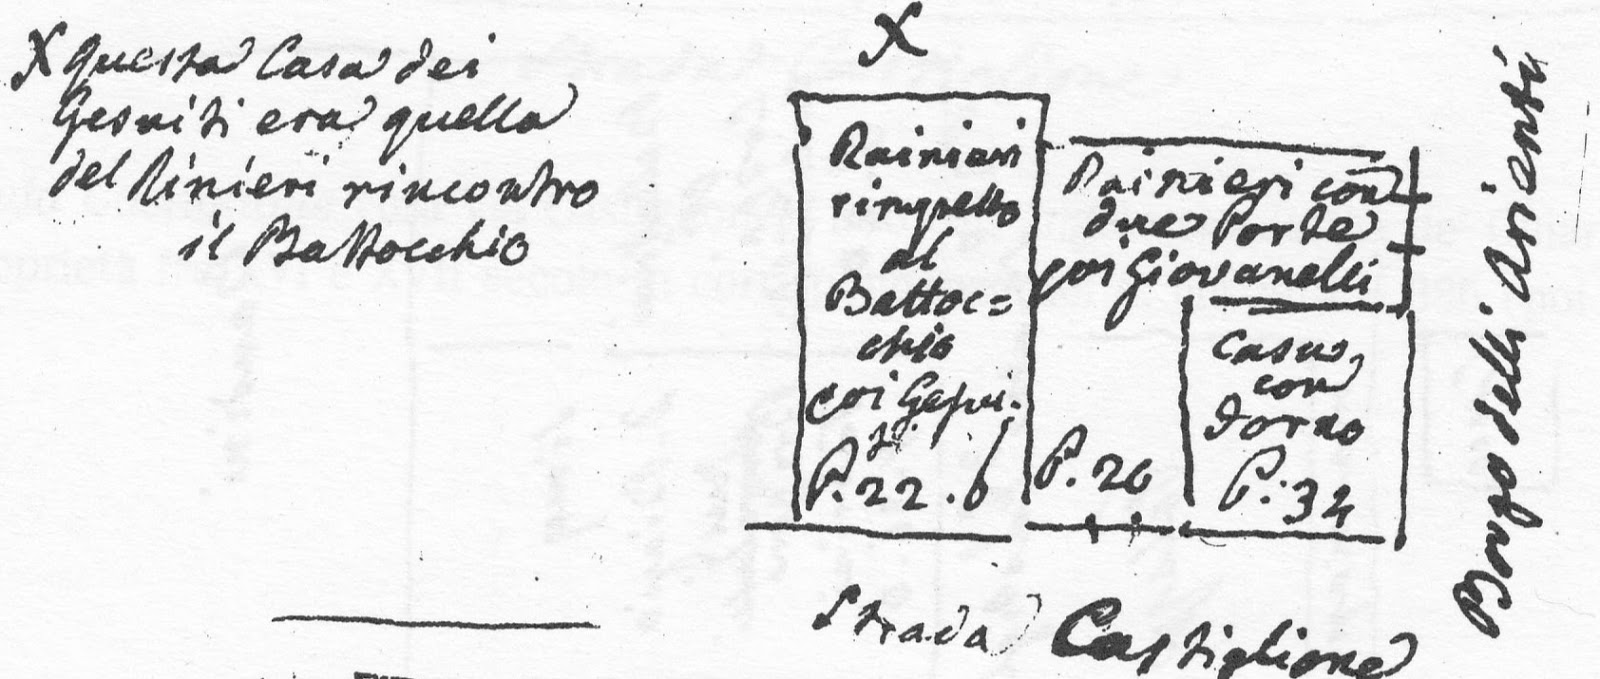 X questa Casa dei
Gesuiti era quella
del Rinieri rincontro
il Battocchio
X
Rainieri
rinpetto
al
Battoc=
chio
poi Gesui:
ti
P. 22. 6
Rainieri con
due Porte
poi Giovanelli
P. 26
Casa
con
forno
P: 34
Strada Castiglione
Borgo delli Arienti